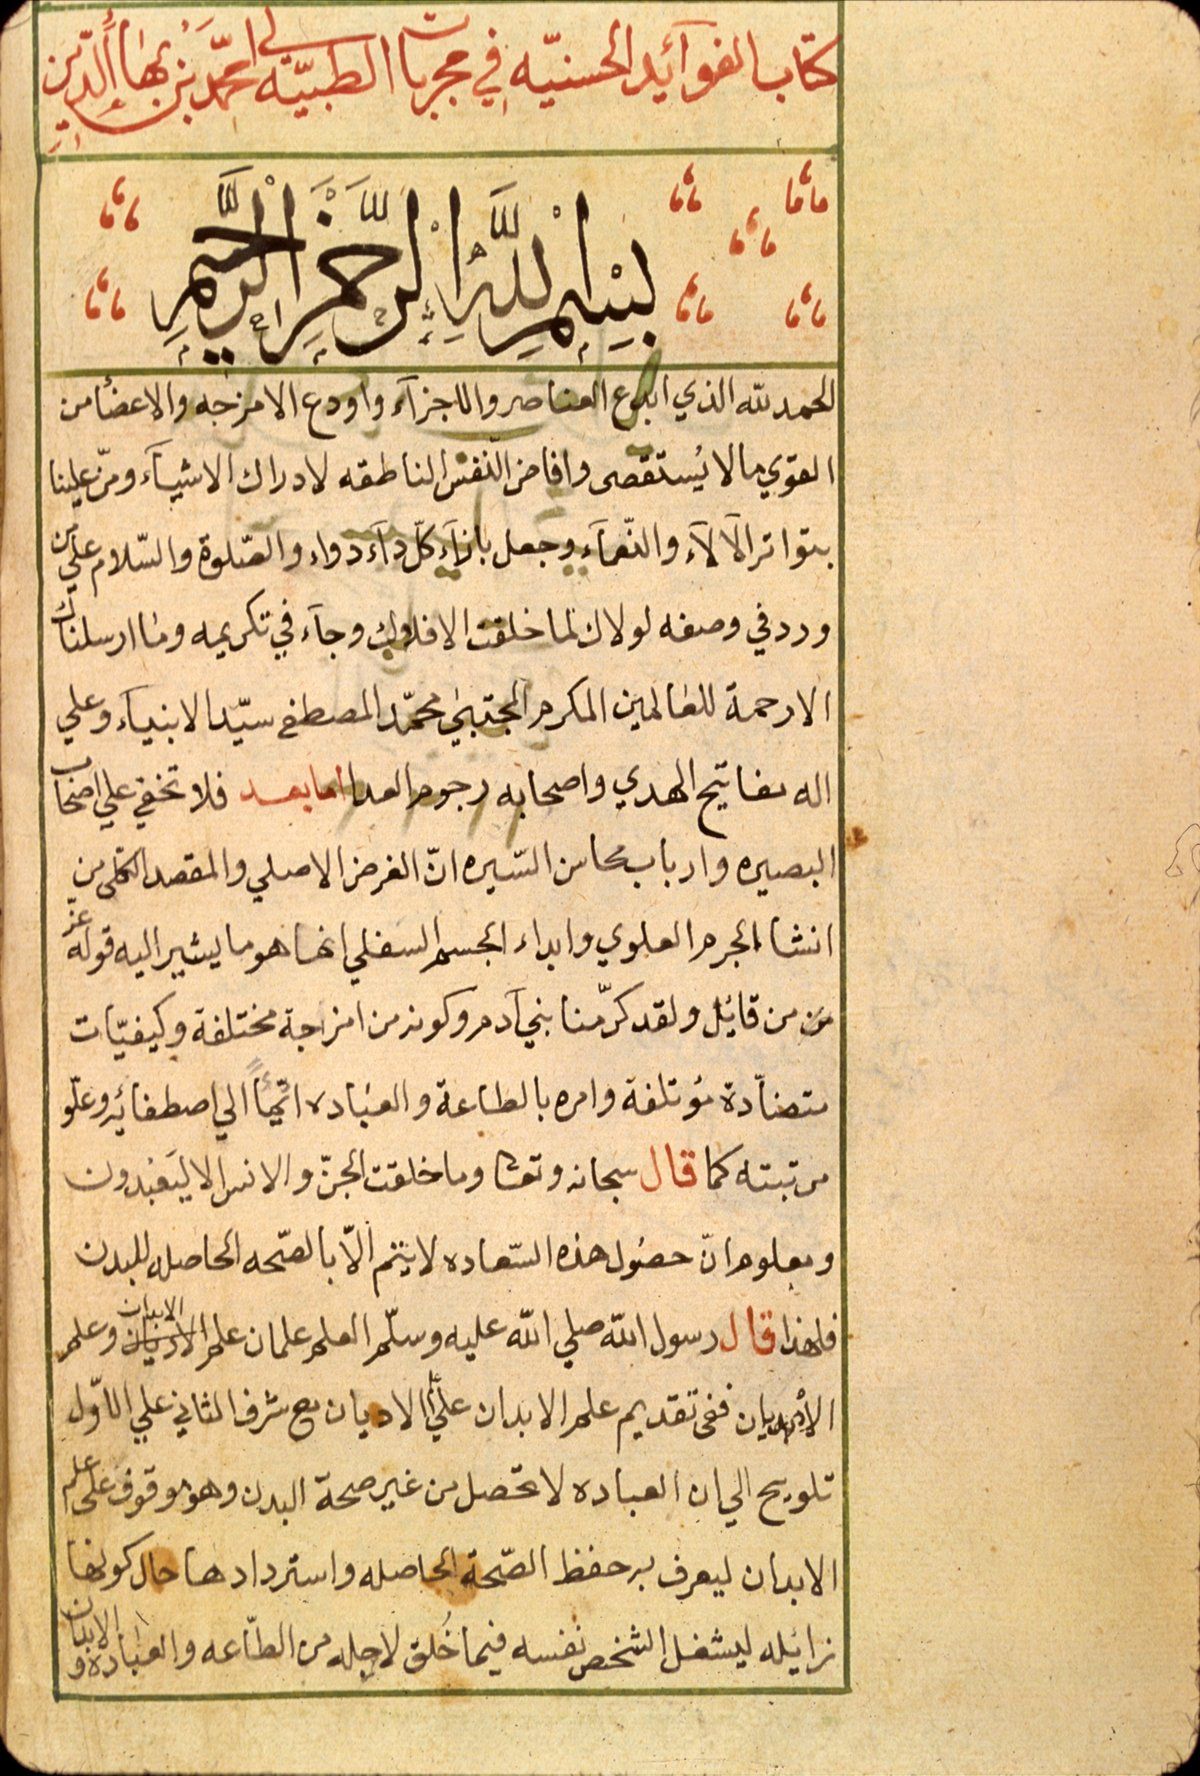 كتاب الفوآئد الحسنيّه في مجربات الطبيّة لي احمّد بن بهاأ الدين
بسم الله الرحمن الرحيم
الحمد لله الذي ابدع العناصر والاجزآء واودع الامزجه والاعضأ من
القوي ما لا يُستقصى وافاض النّفس الناطقه لادراك الاشيآء ومنّ علينا
بتواتر الآلآء والنّعمآء وجعل بازآء كلّ دآء دواء والصّلوة والسّلام علي من
ورد في وصفه لولاك لما خلقت الافلاك وجآء في تكريمه وما ارسلناك
الا رحمة للعالمين المكرم المجتبي محمّد المصطفى سيّد الانبيآء وعلي
اله مفاتيح الهدي واصحابه رجوم العدا اما بعد فلا تخفي علي اصحاب
البصيره وارباب محاسن السّيره انّ الغرض الاصلي والمقصد الكلي من
انشا الجرم العلوي وابداء الجسم السفلي انما هو ما يشير اليه قوله عز
من من قايل ولقد كرّمنا بني آدم وكونه من امزجة مختلفة وكيفيّات
متضآدة مؤتلفة وامره بالطاعة والعباده الي اصطفائه وعلّو
مرتبته كما قال سبحانه وتعا وما خلقت الجنّ والانس الا ليَعبدون
ومعلوم انّ حصُول هذه السّعاده لا يتم الّا بالصّحه الحاصله للبدن
فلهذا قال رسول الله صلي الله عليه وسلّم العلم علمان علم الاديان الابدان وعلم
الأديان ففي تقديم علم الابدان علي الاديان مع شرف الثاني علي الاوّل
تلويح الي ان العباده لا تحصل من غير صحة البدن وهو موقوف علي علم
الابدان ليعرف به حفظ الصّحة الحاصله واستردادها حال كونها
زايله ليشغل الشخص نفسه فيما خُلق لاجله من الطّاعه والعباده و
الابدان